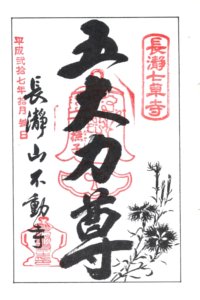 長瀞七草寺
五大力尊
撫子
長瀞山不動寺
平成弐拾七年拾月 日